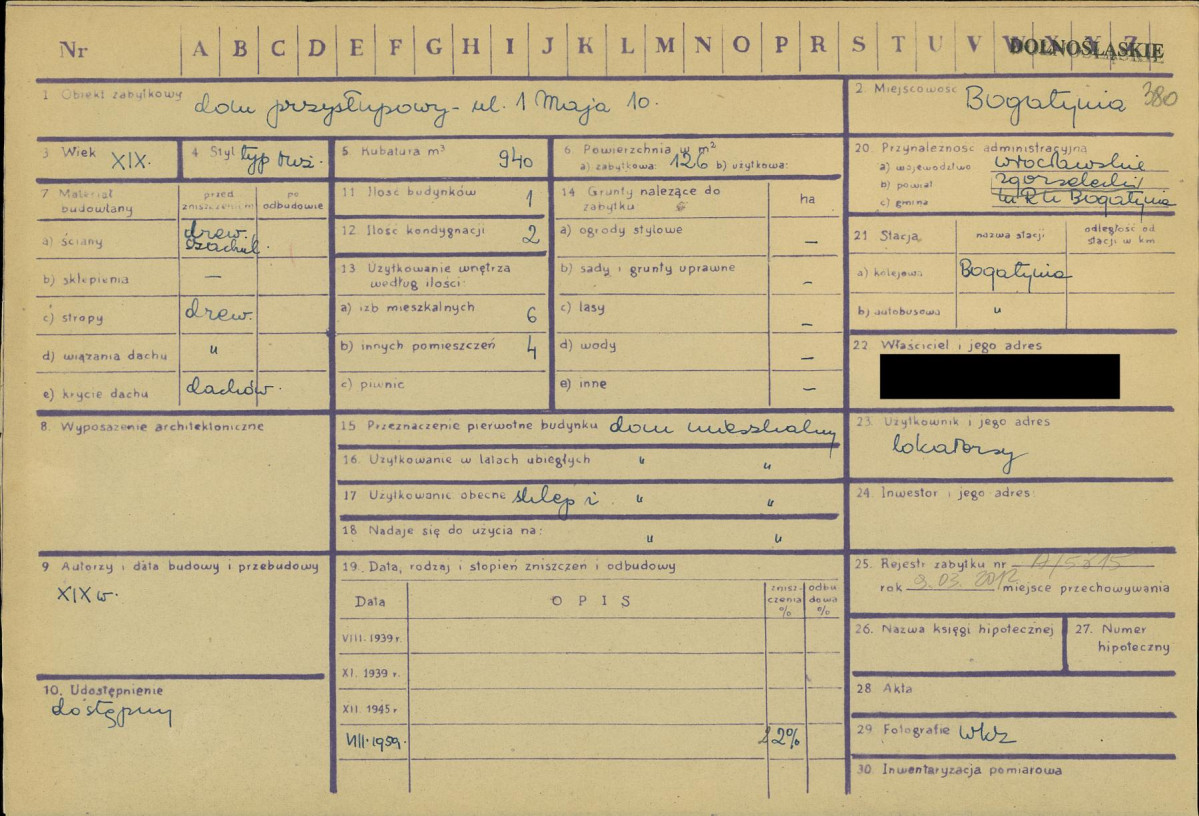 Nr A B C D E F G H I J K L M N O P R S T U V W X Y Z DOLNOŚLĄSKIE
1 Obiekt zabytkowy dom przysłupowy - ul. 1 Maja 10.
2. Miejscowość Bogatynia 380
3 Wiek XIX.
4. Styl typ łuż.
5. Kubatura m³ 940
6. Powierzchnia w m²
a) zabytkowa: 126 b) użytkowa:
7 Materiał budowlany
przed zniszczeniem
po odbudowie
a) ściany drew. szachul.
b) sklepienia —
c) stropy drew.
d) wiązania dachu "
e) krycie dachu dachów.
8. Wyposażenie architektoniczne
9 Autorzy i data budowy i przebudowy
XIX w.
10. Udostępnienie
dostępny
11 Ilość budynków 1
12. Ilość kondygnacji 2
13 Użytkowanie wnętrza
według ilości:
a) izb mieszkalnych 6
b) innych pomieszczeń 4
c) piwnic
14 Grunty należące do
zabytku
ha
a) ogrody stylowe —
b) sady i grunty uprawne —
c) lasy —
d) wody —
e) inne —
15 Przeznaczenie pierwotne budynku dom mieszkalny
16. Użytkowanie w latach ubiegłych " "
17 Użytkowanie obecne sklep i " "
18 Nadaje się do użycia na: " "
19. Data, rodzaj i stopień zniszczeń i odbudowy
Data
OPIS
znisz-
czenia
%
odbu
dowa
%
VIII. 1939 r.
XI. 1939 r.
XII. 1945 r
VIII. 1959. 22%
20. Przynależność administracyjna
a) województwo wrocławskie
b) powiat zgorzelecki
c) gmina MRN Bogatynia
21 Stacja
nazwa stacji
odległość od
stacji w km
a) kolejowa Bogatynia
b) autobusowa "
22. Właściciel i jego adres
23. Użytkownik i jego adres
lokatorzy
24. Inwestor i jego adres:
25. Rejestr zabytku nr A/5815
rok 9.03.2012 miejsce przechowywania
26. Nazwa księgi hipotecznej
27. Numer
hipoteczny
28 Akta
29. Fotografie WKZ
30. Inwentaryzacja pomiarowa